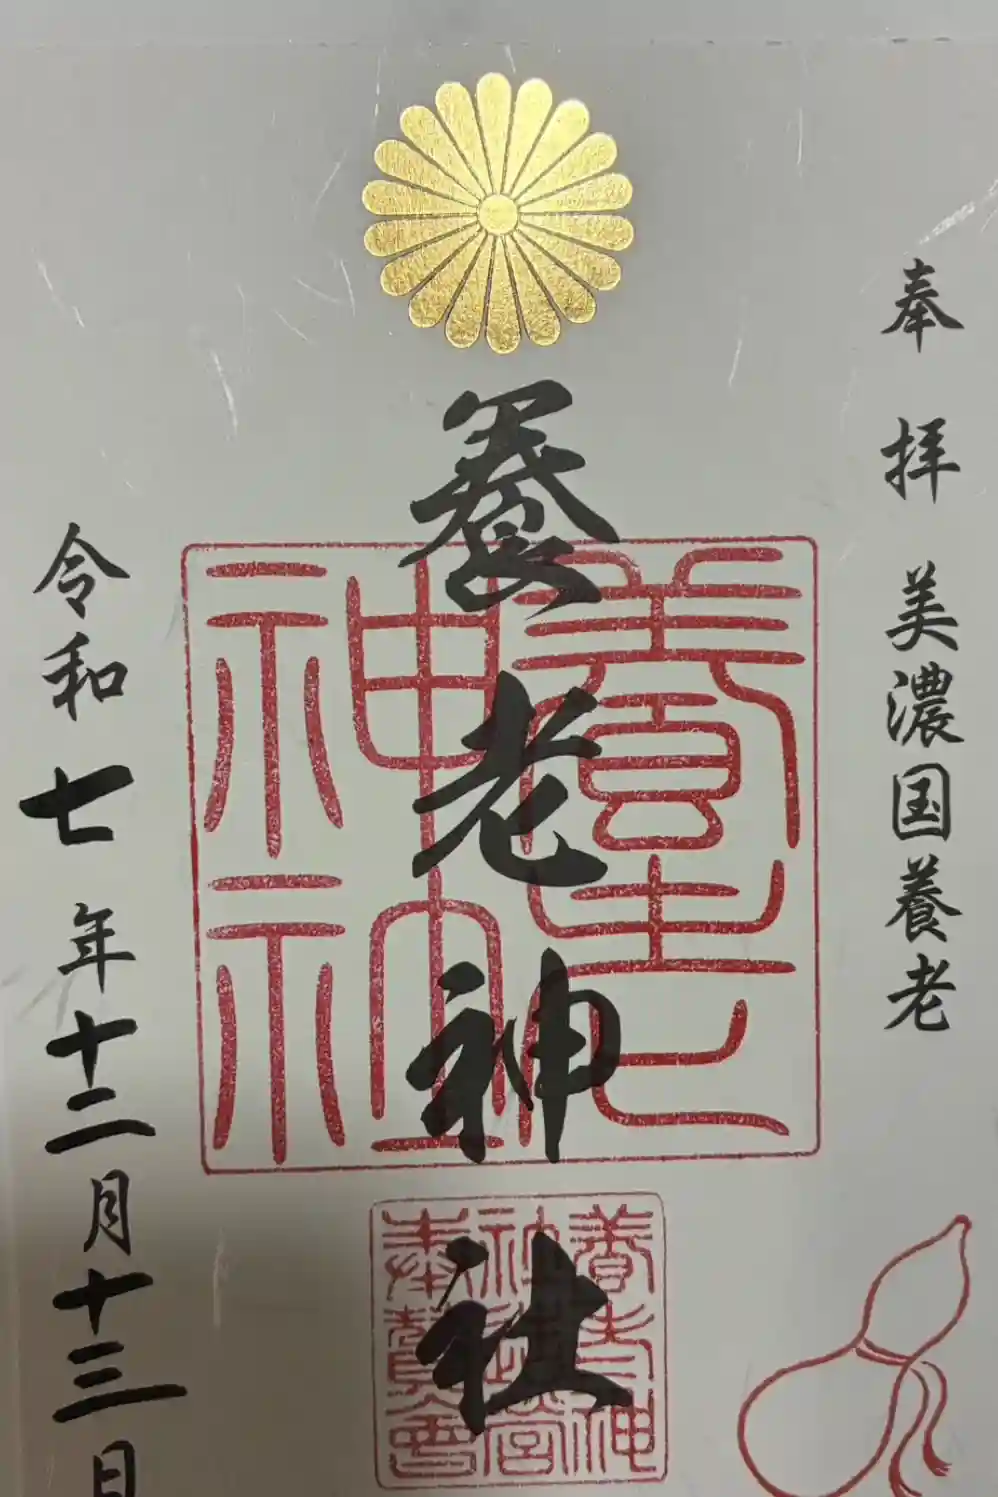 奉拝 美濃国養老
養老神社
養老神社
養老神
社造営
奉賛會
令和七年十二月十三日